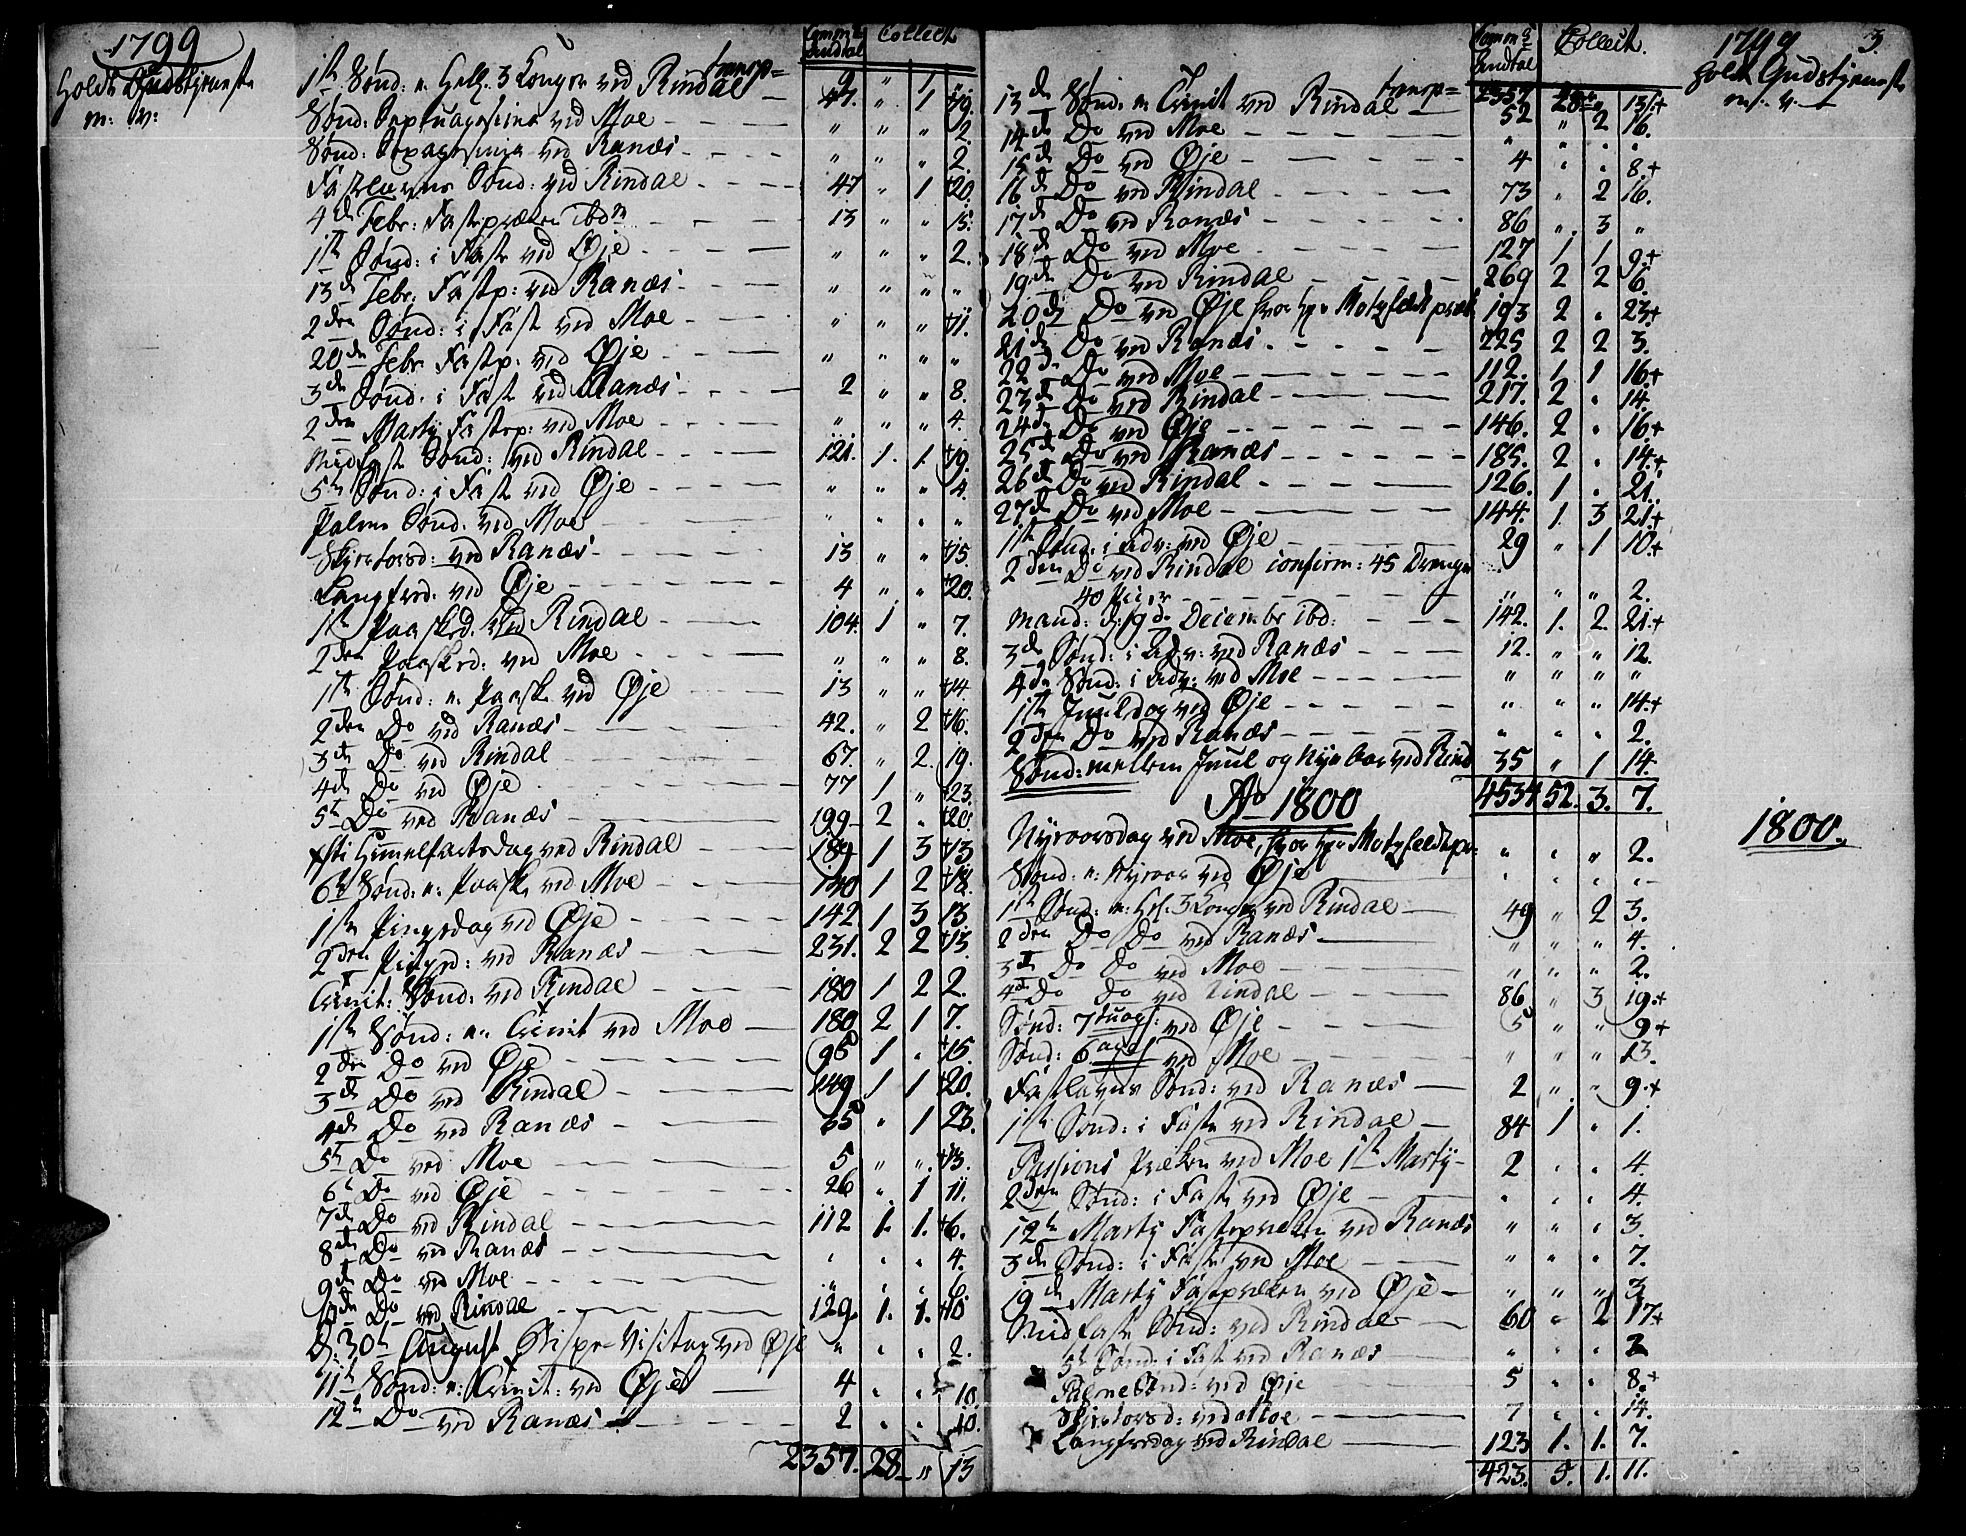 1799
Holdt Gudstjeneste
m: v:
Comm: Andtal Collect
transp=
1ste Sønd: e. Hell. 3 Konger ved Rindal 9 " 1
Sønd: Septuagesima ved Moe 47. " 1 19.
Sønd: Sexagesima ved Ranæs " " " 2.
" " " 2.
Fastelavns Sønd: ved Rindal 47 " 1 +20.
4de Febr: Fastepræken ibdm 13 " " 15.
1ste Sønd: i Faste ved Øje " " " 2.
13de Febr. Fastp: ved Ranæs " " " "
2den Sønd: i Faste ved Moe " " " +11.
20de Febr. Fastp: ved Øje " " " "
3de Sønd: i Fast ved Ranæs 2 " " 8.
2den Marty Fastep: ved Moe " " " 4.
Midfaste Sønd: ved Rindal 121. 1. 1. +19.
5te Sønd: i Faste ved Øje " " " 4.
Palme Sønd. ved Moe " " " "
Skjertorsd: ved Ranæs 13 " " +15.
Langfred: ved Øje 4 " " +20.
1ste Paaskd. ved Rindal 104. 1 " 7.
2den Paaskd: ved Moe " " " 8.
1ste Sønd: e. Paaske ved Øje 13 " " +14.
2den Do ved Ranæs 42. " 2 +16.
3de Do ved Rindal 67. " 2. 19.
4de Do ved Øje 77 1 " +23.
5te Do ved Ranæs 199 2 " +20.
Xsti Himelfartsdag ved Rindal 189 1 3 +13
6te Sønd: e. Paaske ved Moe 130 1 2 +18.
1ste Pingsdag ved Øje 142 1 3 13
2den Pingsd: ved Ranæs 231. 2 2 +13.
Trinit: Sønd: ved Rindal 180 1 2 2.
1ste Sønd: e. Trinit ved Moe 180 2 1 7.
2den Do ved Øje 95 1 " +15.
3de Do ved Rindal 149 1 1 +20.
4de Do ved Ranæs 65 " 1 23.
5te Do ved Moe 5 " " +13.
6te Do ved Øje 26 " 1 11.
7de Do ved Rindal 112 1. 1. +6.
8de Do ved Ranæs " " " 4.
9de Do ved Moe " " " 6
10de Do ved Rindal 129. 1. 1. +10
D. 30te August Bispe-Visitag ved Øje " " " 2.
11te Sønd: e: Trinit: ved Øje 4 " " 10.
12te Do ved Ranæs 2 " " 10.
2357. 28 " 13
Comm: Andtal Collect.
1799 3.
Holdt Gudstjeneste
m. v.
transp=
13de Sønd: e. Trinit ved Rindal 2357 28 " 13+
14de Do ved Moe 52 " 2 16.
15de Do ved Øje 4 " " 8+
16de Do ved Rindal 73 " 2 16.
17de Do ved Ranæs 86 " 3 "
18de Do ved Moe 127 1 1 9+
19de Do ved Rindal 269 2 2 6.
20de Do ved Øje hvor Hr. Motzfeldt præd. 193 2 " 23+
21de Do ved Ranæs 225 2 2 3.
22de Do ved Moe 112. 1 1 16+
23de Do ved Rindal 217. 2 " 14
24de Do ved Øje 146. 2 " 16+
25de Do ved Ranæs 185. 2 " 14+
26de Do ved Rindal 126. 1 " 21.
27de Do ved Moe 144. 1. 3 21+
1ste Sønd. i Adv: ved Øje 29 " 1 10+
2den Do ved Rindal confirm: 45 Drenge
40 Piger " " " 2.
Mand. d: 9de December ibd: 142. 1. 2. 21+
3de Sønd: i Adv: ved Ranæs 12. " " 12.
4de Sønd: i Adv: ved Moe " " " "
1ste Juuldag ved Øje " " " 14+
2den Do ved Ranæs " " " 2.
Sønd: mellem Juul og Nye Aar ved Rind 35 " 1 14.
4534 52. 3. 7.
Ao 1800
1800.
Nyaarsdag ved Moe, hvor Hr. Motzfeldt pr. " " " 2.
Sønd: e: Nyeaar ved Øje " " " "
1ste Sønd: e: Hel. 3 Konger ved Rindal 49 " 2 3.
2den Do Do ved Ranæs " " " 4.
3de Do Do ved Moe " " " 2.
4de Do Do ved Rindal 86 " 3 19+
Sønd: 7tuags: ved Øje 5 " " 9+
Sønd: 6ages: ved Moe " " " 13.
Fastlavns Sønd: ved Ranæs 2 " " 9+
1ste Sønd: i Faste ved Rindal 84 1 " 1.
Passions Præken ved Moe 1ste Marty 2 " " 4.
2den Sønd: i Faste ved Øje " " " 4.
12te Marty Fastepræken ved Ranæs " " " 3.
3de Sønd: i Faste ved Moe " " " 7.
19de Marty Fastpræken ved Øje " " " 3
Midfaste Sønd: ved Rindal 60 " 2 17+
5te Sønd: i Fast ved Ranæs " " " 2
Palme Sønd: ved Øje 5 " " 8+
Skjertorsd: ved Moe 7 " " 14.
Langfredag ved Rindal 123 1. 1. 7.
423. 5. 1. 11.